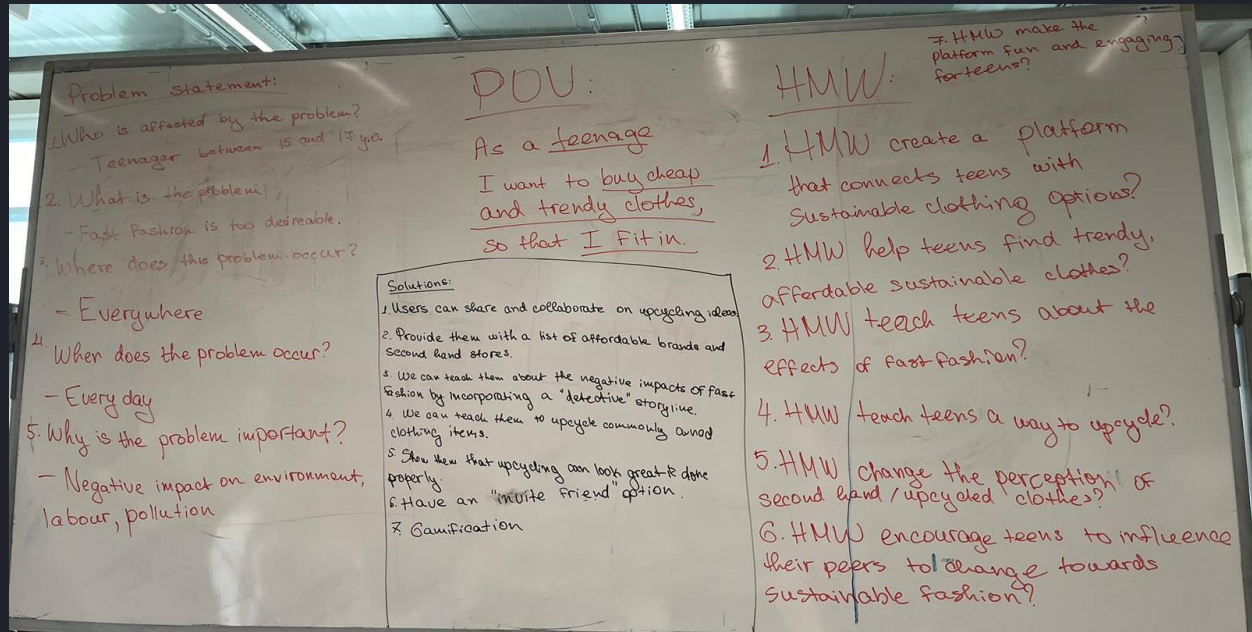 Problem statement:
1. Who is affected by the problem?
- Teenager between 15 and 17 y.o.
2. What is the problem
- Fast fashion is too desireable.
3. Where does this problem occur?
- Everywhere
4.
When does the problem occur?
- Every day
5. Why is the problem important?
- Negative impact on environment,
labour, pollution
POV:
As a teenage
I want to buy cheap
and trendy clothes,
so that I fit in.
Solutions:
1. Users can share and collaborate on upcycling ideas
2. Provide them with a list of affordable brands and
second hand stores.
3. We can teach them about the negative impacts of fast
fashion by incorporating a "detective" storyline.
4. We can teach them to upcycle commonly owned
clothing items.
5. Show them that upcycling can look great if done
properly.
6. Have an "invite friend" option.
7. Gamification
HMW:
1. HMW create a platform
that connects teens with
sustainable clothing options?
2. HMW help teens find trendy,
affordable sustainable clothes?
3. HMW teach teens about the
effects of fast fashion?
4. HMW teach teens a way to upcycle?
5. HMW change the perception of
second hand / upcycled clothes?
6. HMW encourage teens to influence
their peers to change towards
sustainable fashion?
7. HMW make the
platform fun and engaging
for teens?